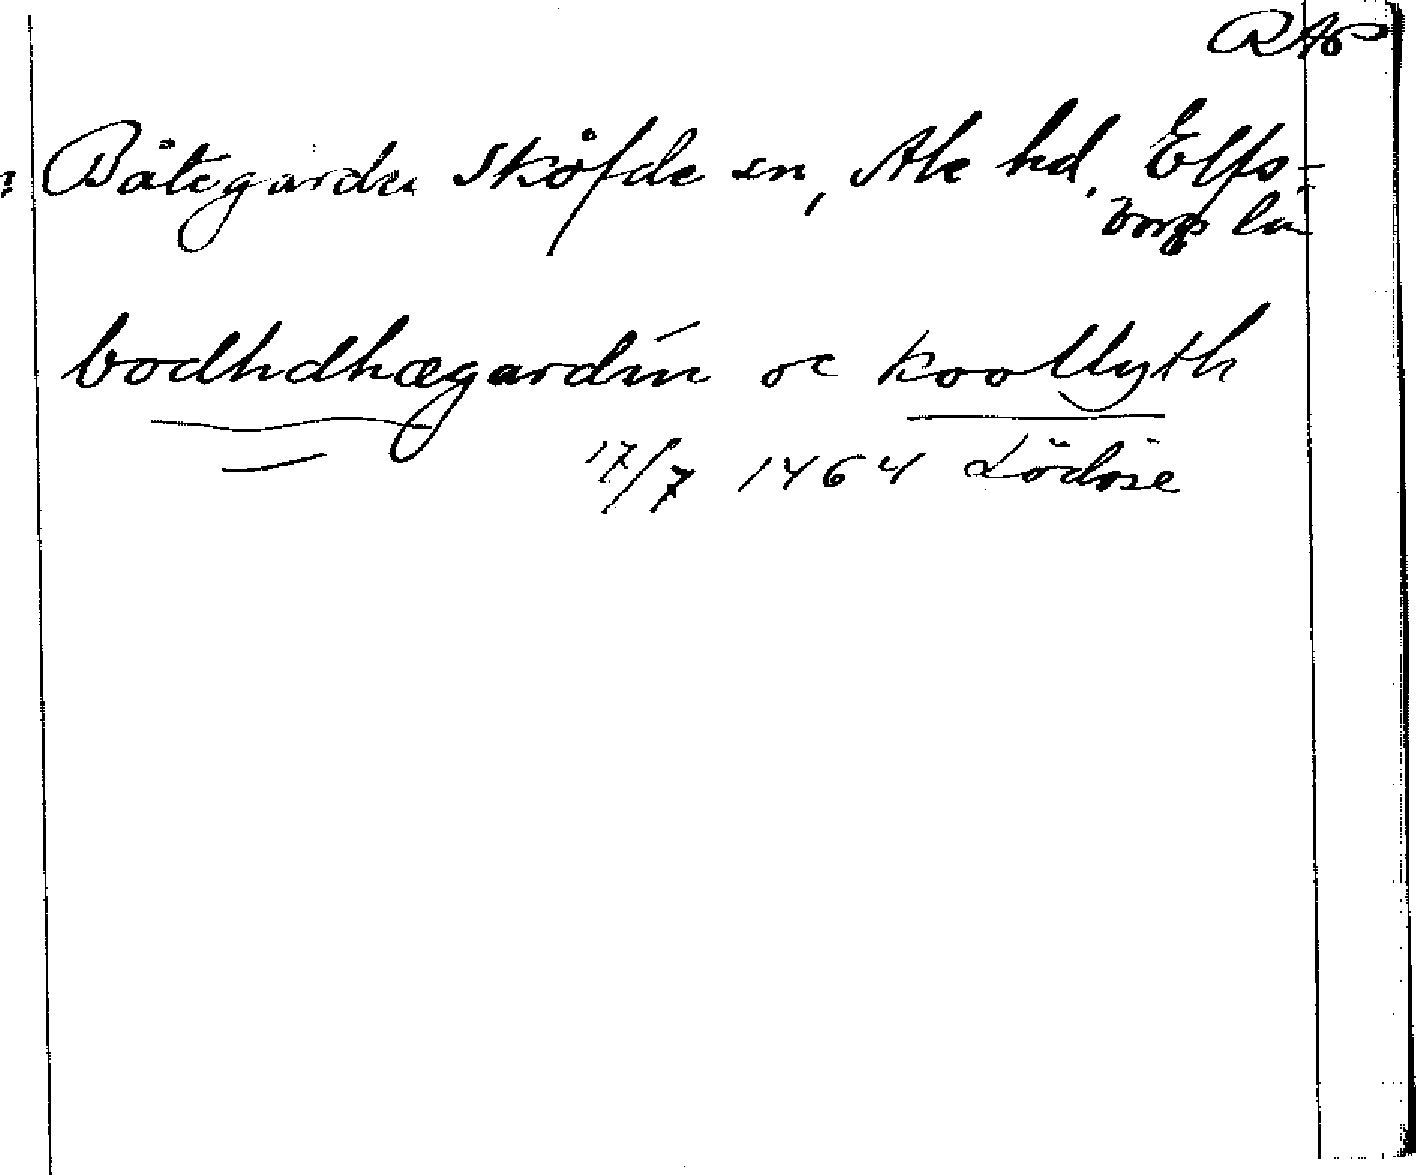 RAp
Båtegården Sköfde sn, Ale hd. Elfs-
borgs län
bodhdhægardin oc koollyth
17/7 1464 Lödöse